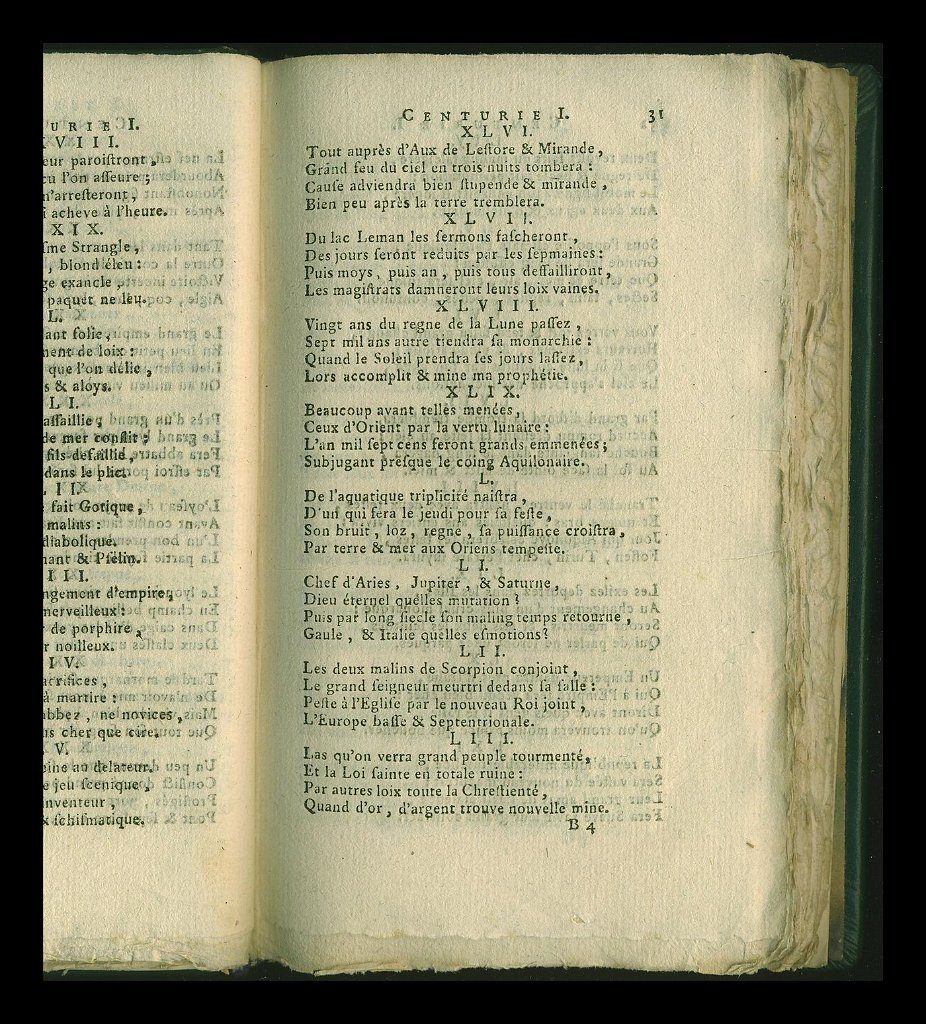 URIE I.
XVIII.
eur paroiſtront,
cu l'on aſſeure;
n'arreſteront,
i acheve à l'heure.
XIX.
ſme Strangle,
, blond éleu:
ge exancle,
paquet ne leu.
L.
ant folie,
ment de loix:
que l'on délie,
s & aloys.
LI.
aſſaillie,
de mer conflit;
fils defaillie,
dans le plict.
LII
fait Gotique,
malins:
diabolique.
nant & Pſelin.
III.
ngement d'empire,
merveilleux:
de porphire,
r noilleux.
IV.
acrifices,
à martire:
abbez, ne novices,
us cher que cire.
V.
eine au delateur.
e jeu ſcenique,
inventeur,
x ſchiſmatique.
CENTURIE I. 31
XLVI.
Tout auprès d'Aux de Leſtore & Mirande,
Grand feu du ciel en trois nuits tombera:
Cauſe adviendra bien ſtupende & mirande,
Bien peu après la terre tremblera.
XLVII.
Du lac Leman les ſermons faſcheront,
Des jours ſeront reduits par les ſepmaines:
Puis moys, puis an, puis tous deffailliront,
Les magiſtrats damneront leurs loix vaines.
XLVIII.
Vingt ans du regne de la Lune paſſez,
Sept mil ans autre tiendra ſa monarchie:
Quand le Soleil prendra ſes jours laſſez,
Lors accomplit & mine ma prophétie.
XLIX.
Beaucoup avant telles menées,
Ceux d'Orient par la vertu lunaire:
L'an mil ſept cens feront grands emmenées;
Subjugant preſque le coing Aquilonaire.
L.
De l'aquatique triplicité naiſtra,
D'un qui fera le jeudi pour ſa feſte,
Son bruit, loz, regne, ſa puiſſance croiſtra,
Par terre & mer aux Oriens tempeſte.
LI.
Chef d'Aries, Jupiter, & Saturne,
Dieu éternel quelles mutation?
Puis par long ſiecle ſon maling temps retourne,
Gaule, & Italie quelles eſmotions?
LII.
Les deux malins de Scorpion conjoint,
Le grand ſeigneur meurtri dedans ſa ſalle:
Peſte à l'Egliſe par le nouveau Roi joint,
L'Europe baſſe & Septentrionale.
LIII.
Las qu'on verra grand peuple tourmenté,
Et la Loi ſainte en totale ruine:
Par autres loix toute la Chreſtienté,
Quand d'or, d'argent trouve nouvelle mine.
B 4